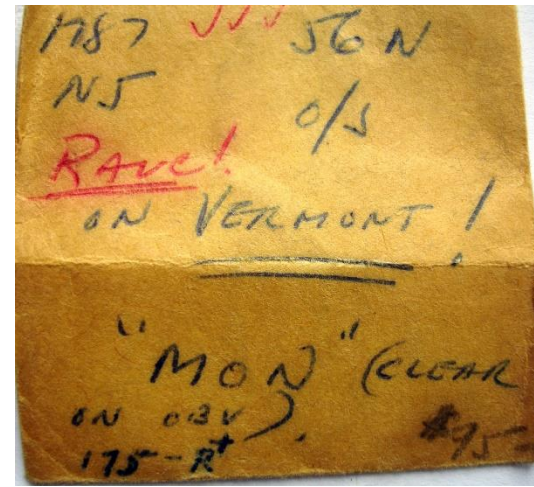 1787 JJJ 56N
NJ O/S
RARE!
ON VERMONT!
"MON" (CLEAR
ON OBV).
175-R+ $95-